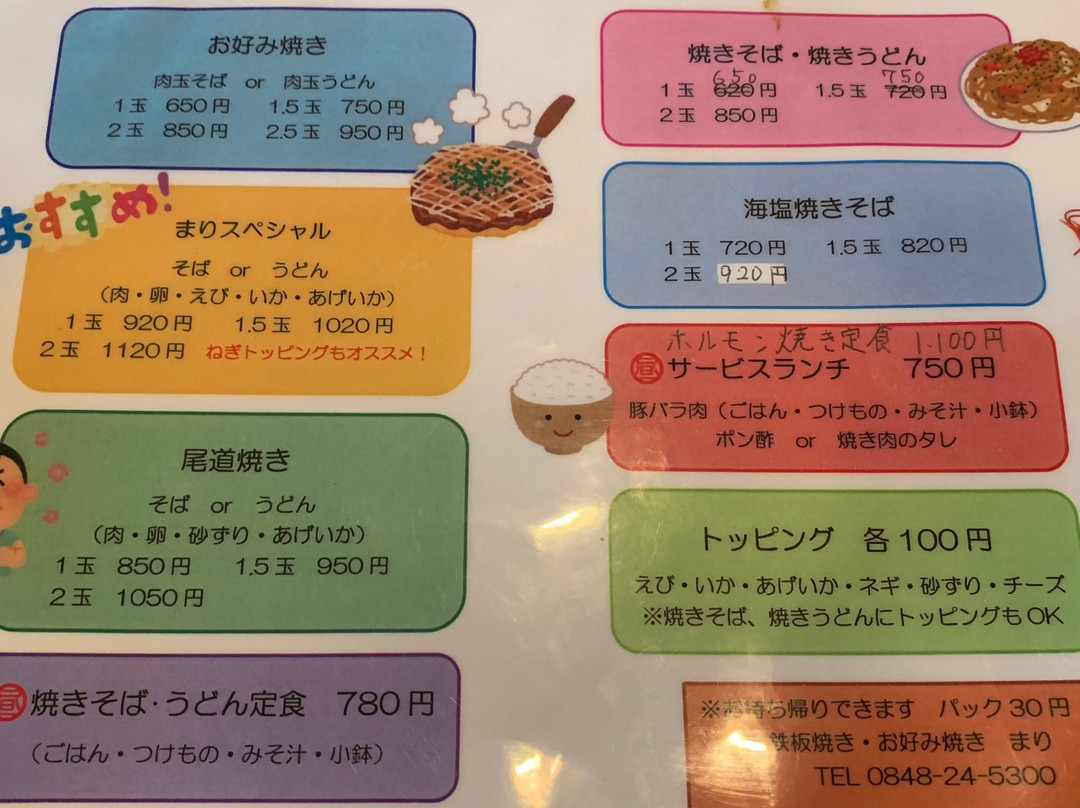 お好み焼き
肉玉そば or 肉玉うどん
1玉 650円 1.5玉 750円
2玉 850円 2.5玉 950円
おすすめ!
まりスペシャル
そば or うどん
(肉・卵・えび・いか・あげいか)
1玉 920円 1.5玉 1020円
2玉 1120円 ねぎトッピングもオススメ!
尾道焼き
そば or うどん
(肉・卵・砂ずり・あげいか)
1玉 850円 1.5玉 950円
2玉 1050円
昼 焼きそば・うどん定食 780円
(ごはん・つけもの・みそ汁・小鉢)
焼きそば・焼きうどん
650 750
1玉 620円 1.5玉 720円
2玉 850円
海塩焼きそば
1玉 720円 1.5玉 820円
2玉 920円
ホルモン焼き定食 1.100円
昼 サービスランチ 750円
豚バラ肉(ごはん・つけもの・みそ汁・小鉢)
ポン酢 or 焼き肉のタレ
トッピング 各100円
えび・いか・あげいか・ネギ・砂ずり・チーズ
※焼きそば、焼きうどんにトッピングもOK
※お持ち帰りできます パック30円
鉄板焼き・お好み焼き まり
TEL 0848-24-5300